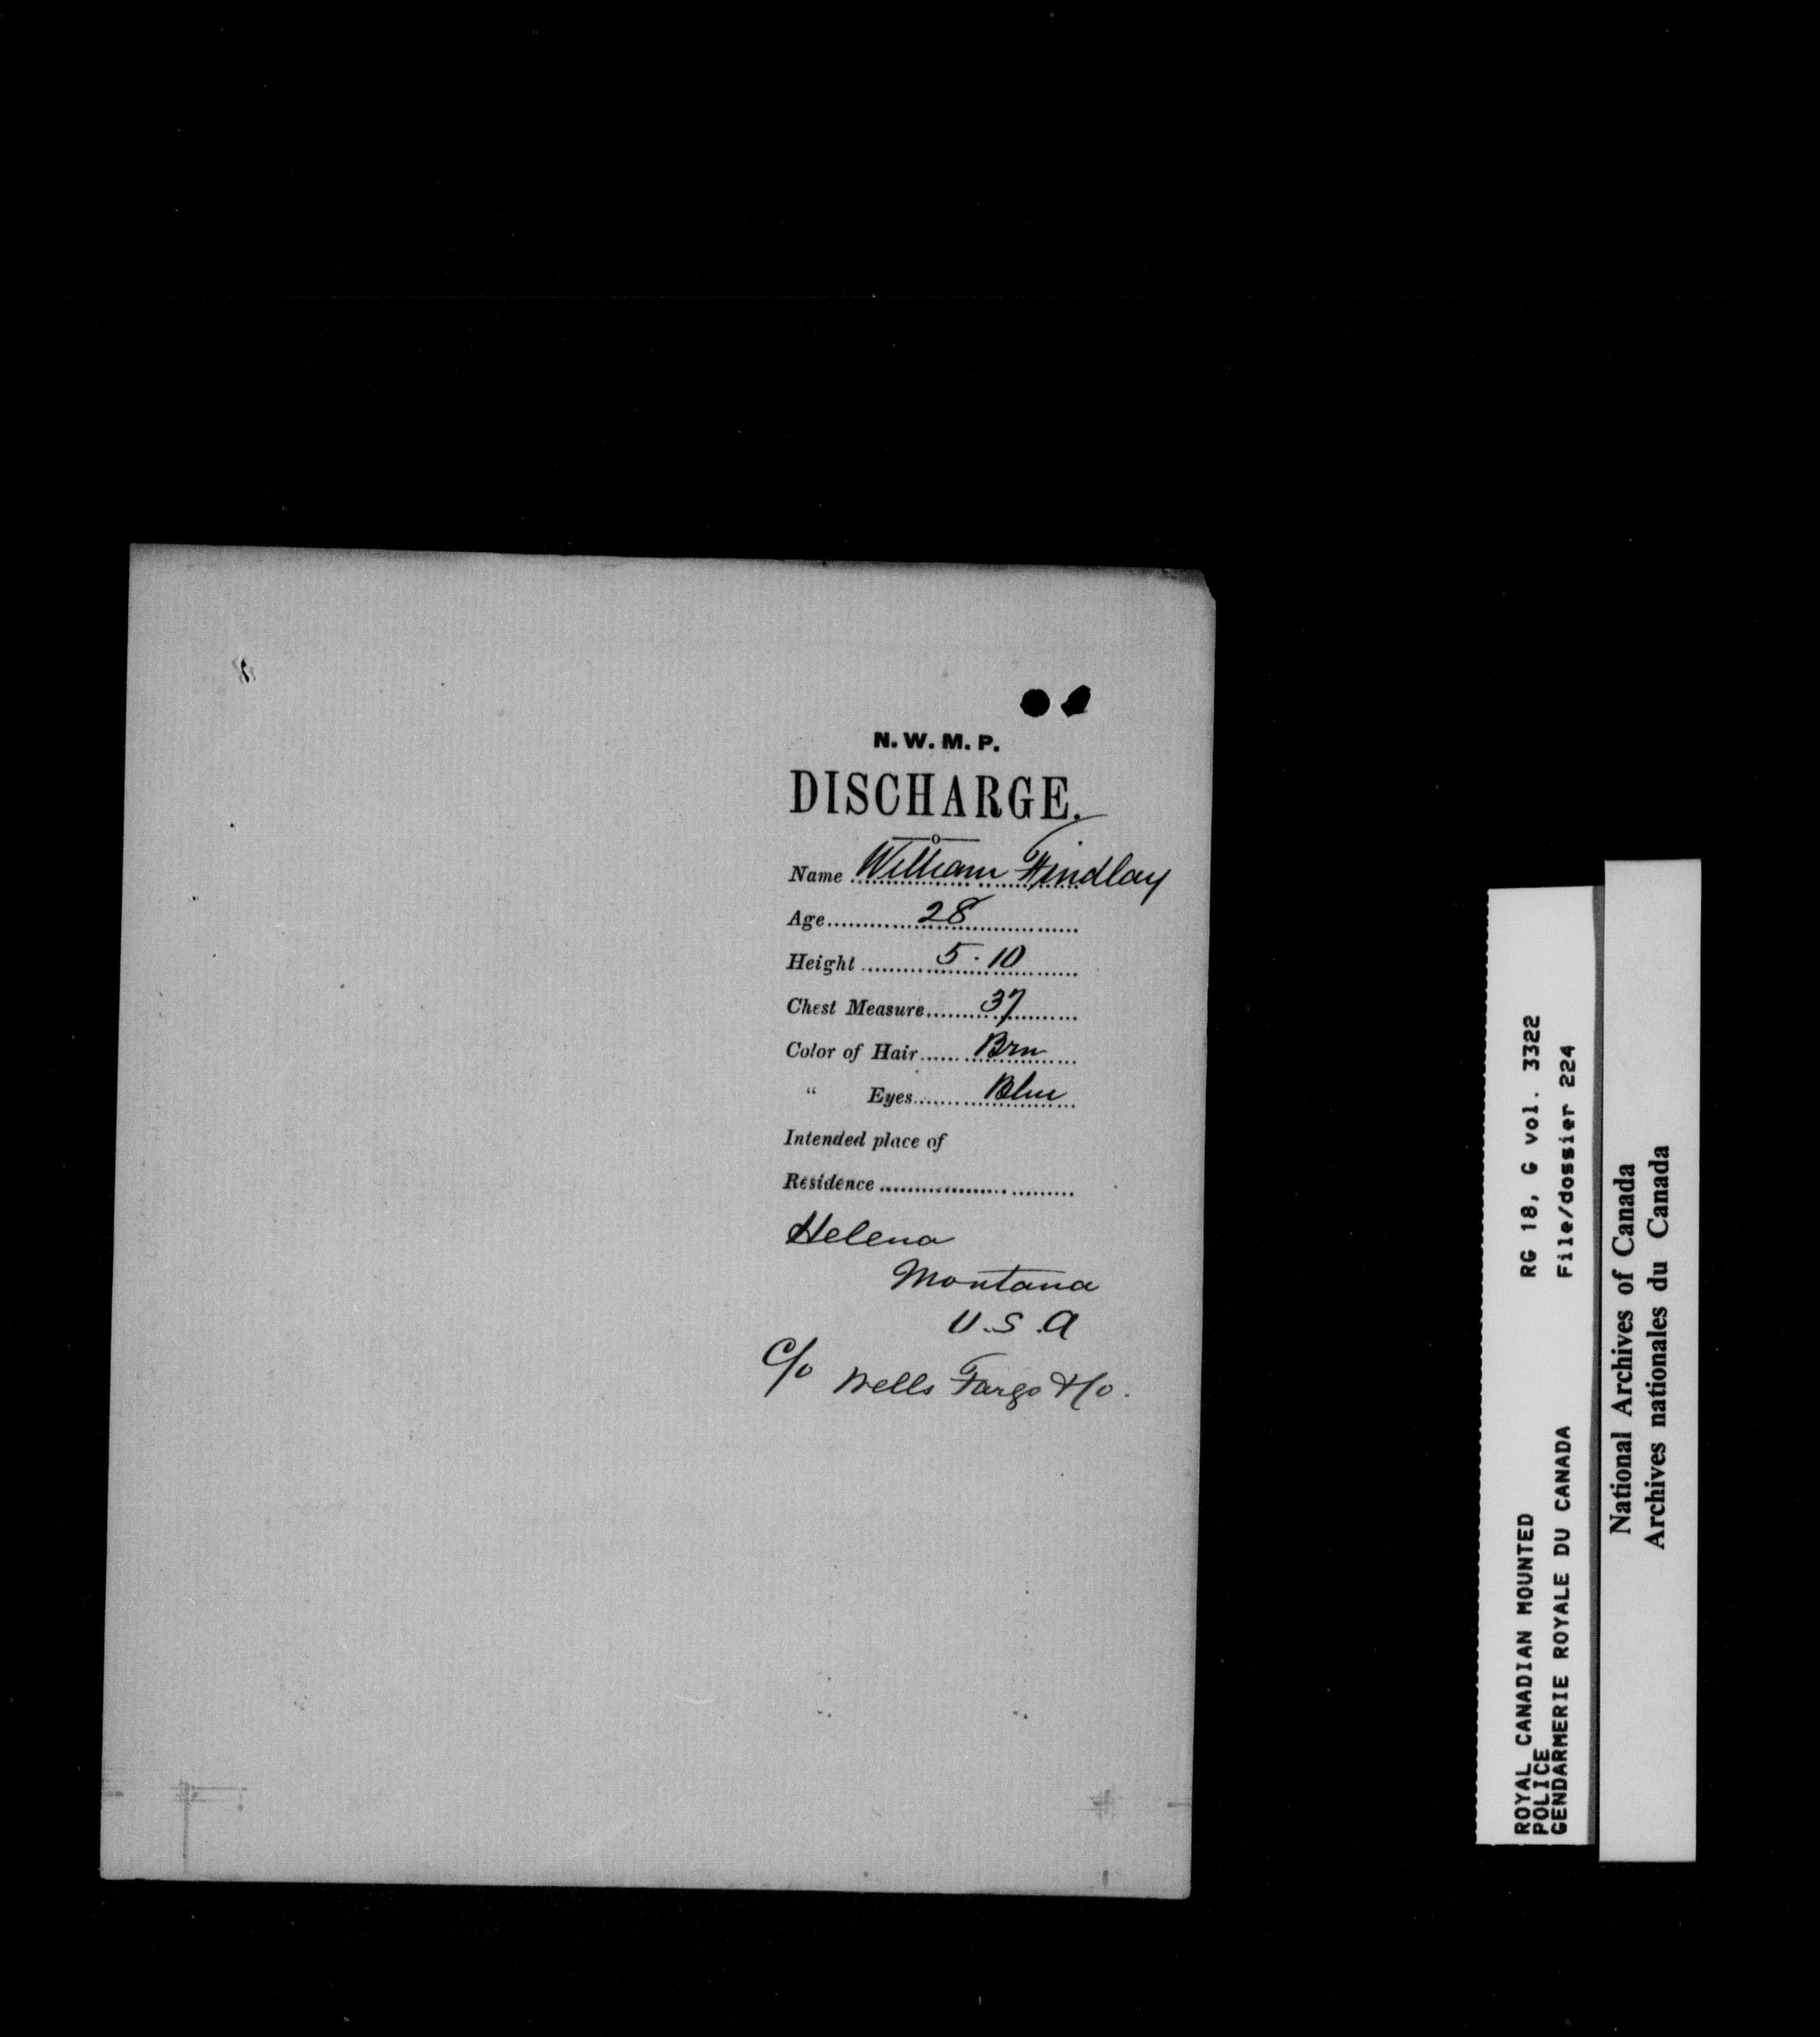 N. W. M. P.
DISCHARGE.
Name William Findlay
Age 28
Height 5.10
Chest Measure 37
Color of Hair Brn
" Eyes Blue
Intended place of
Residence
Helena
Montana
U.S.A
C/o Wells Fargo & Co.
ROYAL CANADIAN MOUNTED RG 18, G vol. 3322
POLICE
GENDARMERIE ROYALE DU CANADA File/dossier 224
National Archives of Canada
Archives nationales du Canada